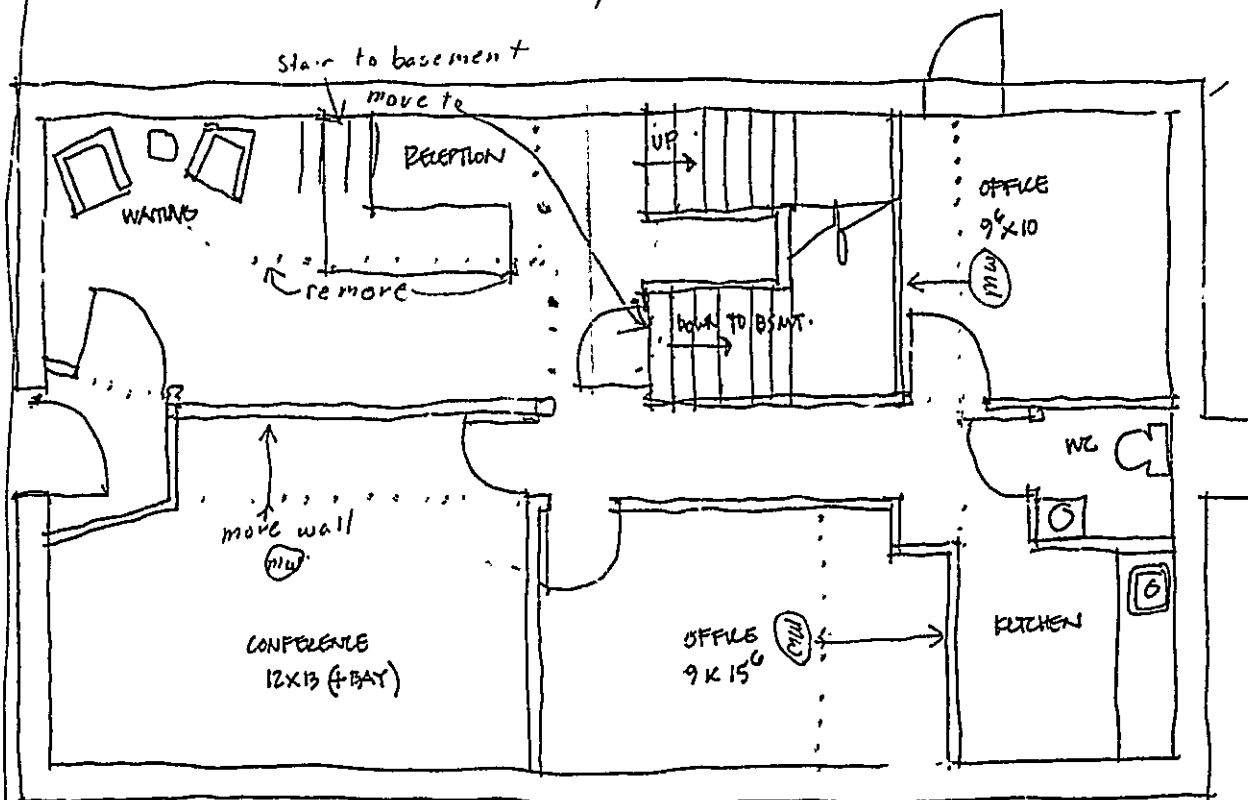 Stair to basement
move to
UP
RECEPTION
OFFICE
9⁶ X 10
WAITING
MW
remove
DOWN TO BSMT.
WC
move wall
MW
CONFERENCE
12X13 (+BAY)
OFFICE
9 X 15⁶
MW
KITCHEN